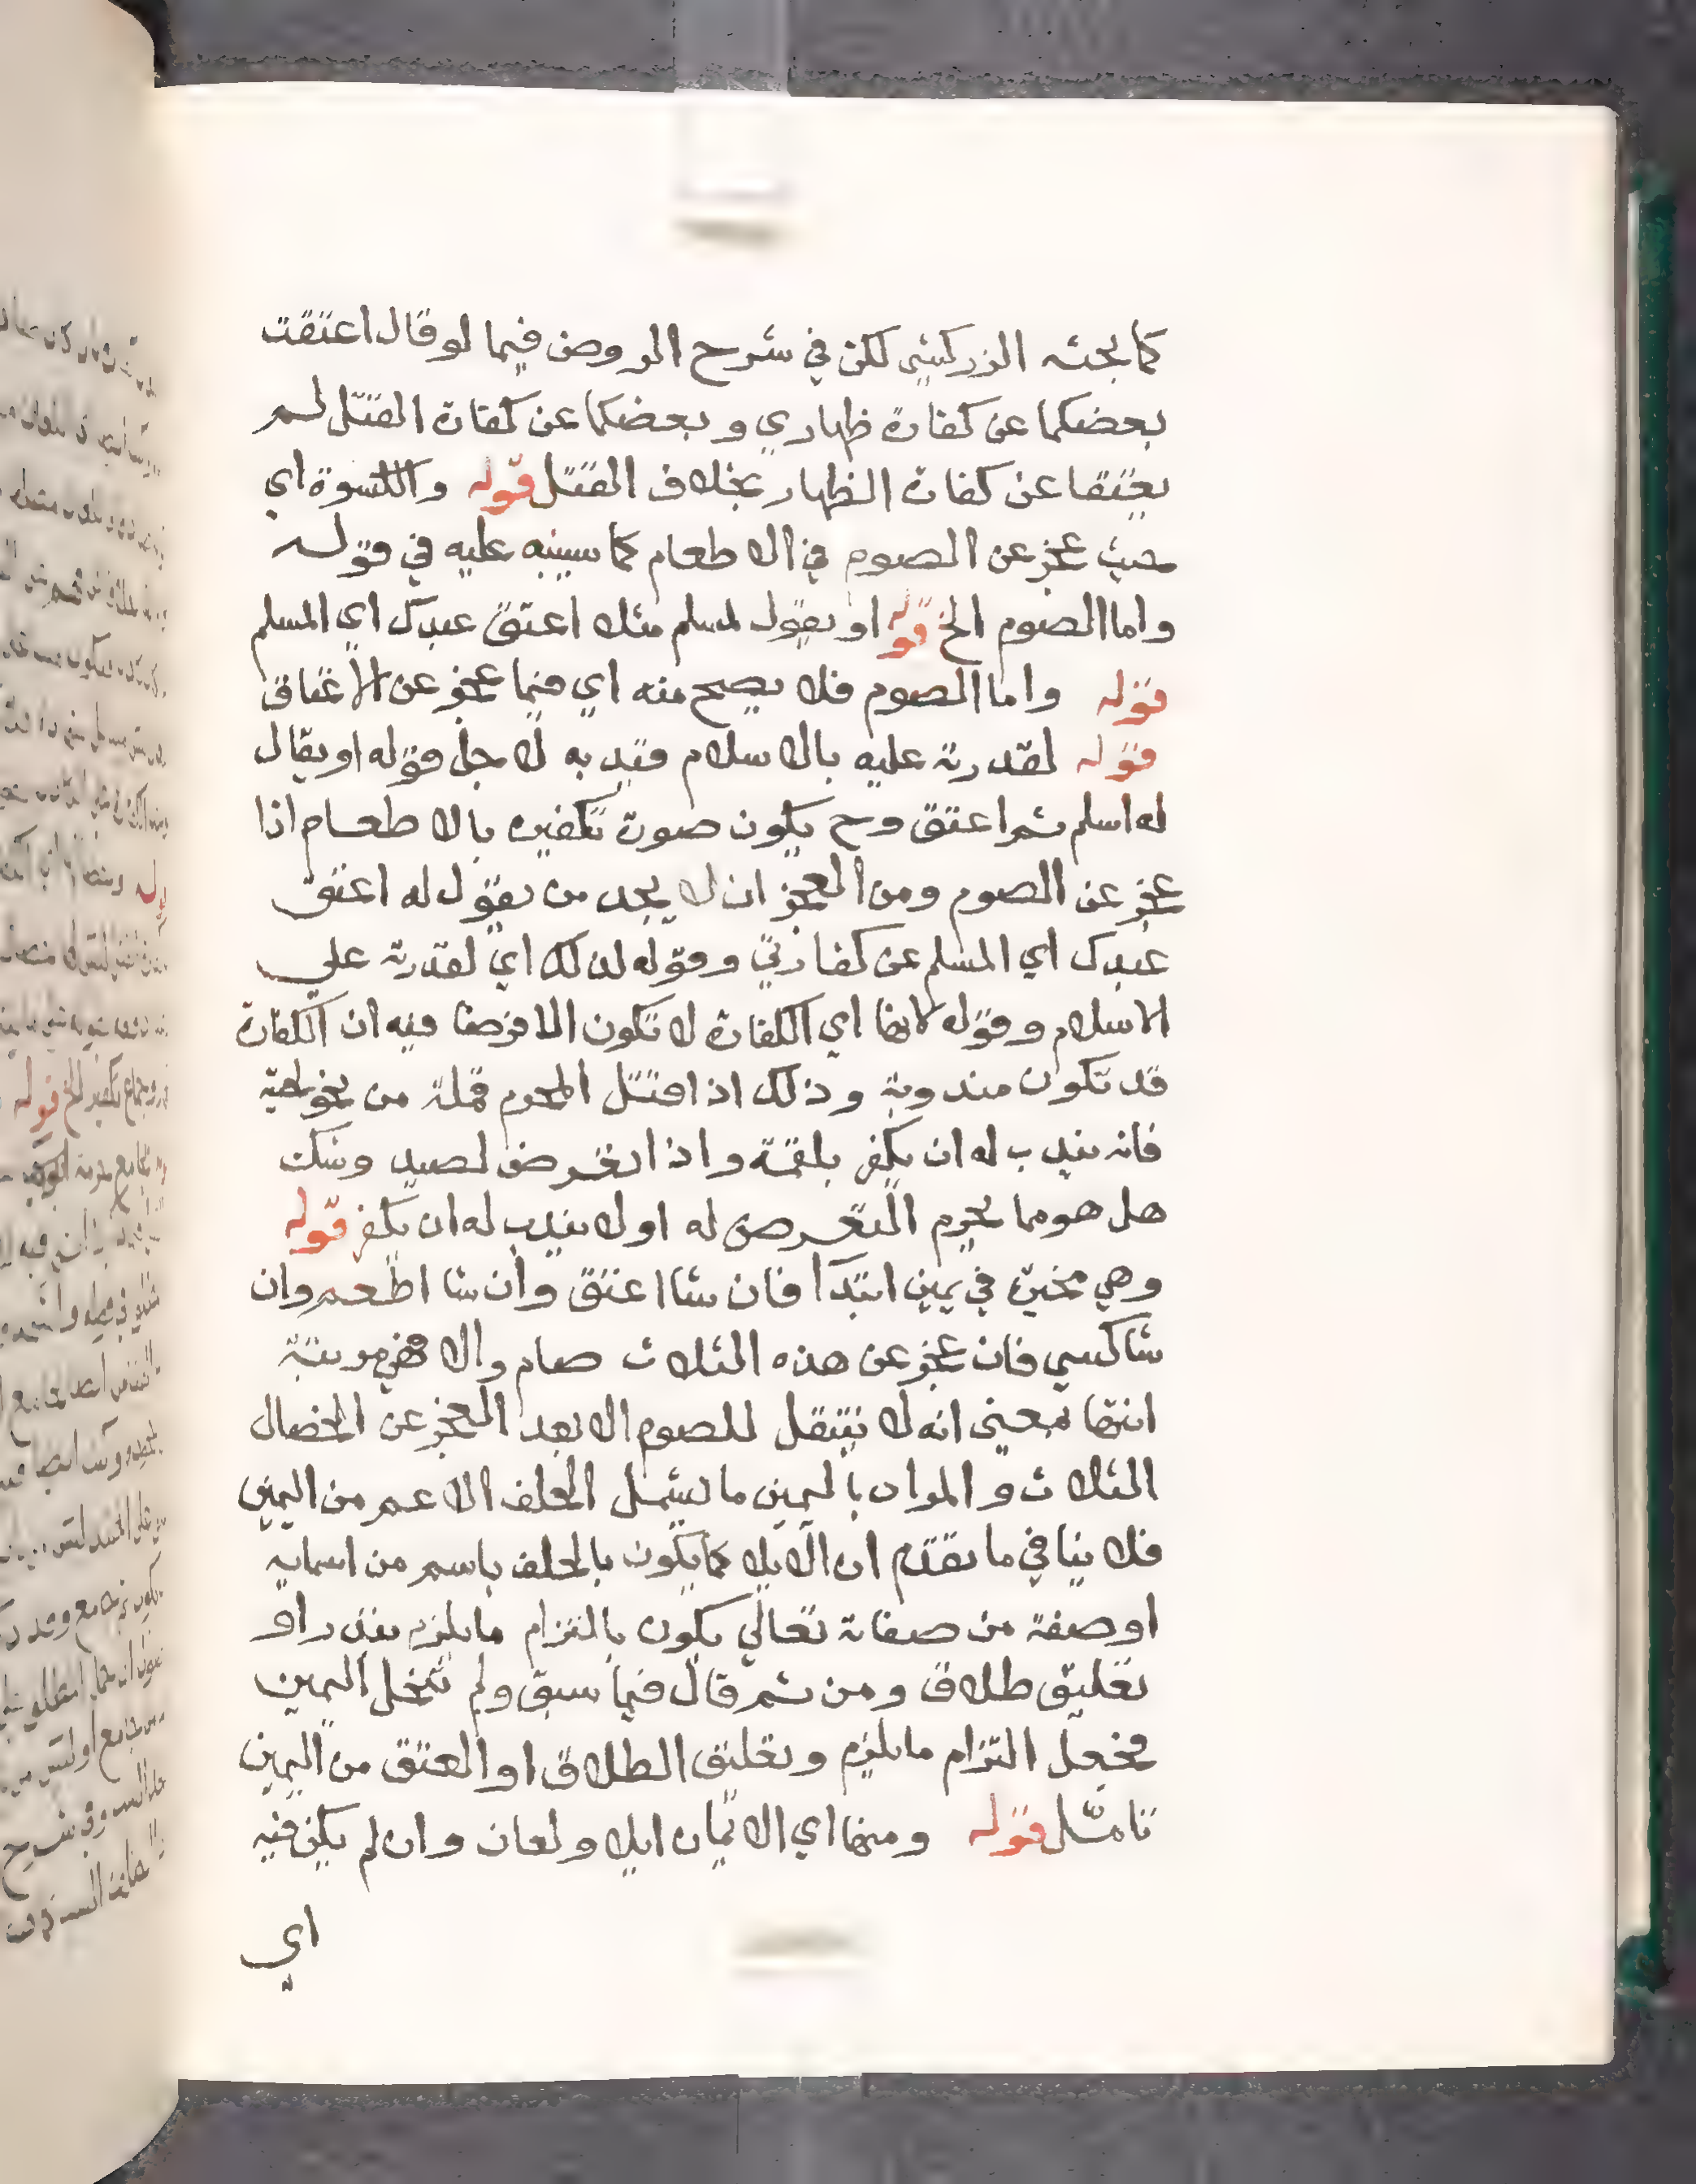 كما بحثه الزركشي لكن في شرح الروض فيما لو قال اعتقت
بعضكما عن كفارة ظهاري و بعضكما عن كفارة القتل لم
يعتقا عن كفارة الظهار بخلاف القتل قوله والكسوة اي
حيث عجز عن الصوم في الاطعام كما سينبه عليه في قوله
واما الصوم الخ قوله او يقول لمسلم مثلا اعتق عبدك اي المسلم
قوله واما الصوم فلا يصح منه اي فيما عجز عن الاعتاق
قوله لقدرته عليه بالاسلام قيد به لاجل قوله او يقال
له اسلم ثم اعتق وح يكون صورة تكفيره بالاطعام اذا
عجز عن الصوم ومن العجز ان لا يجد من يقول له اعتق
عبدك اي المسلم عن كفارتي وقوله لذلك اي لقدرته علي
الاسلام وقوله لانها اي الكفارة لا تكون الا فرضا فيه ان الكفارة
قد تكون مندوبة وذلك اذا قتل المحرم قملة من نحو لحيته
فانه يندب له ان يكفر بلقمة واذا تعرض لصيد وشك
هل هو مما يحرم التعرض له او لا يندب له ان يكفر قوله
وهي مخيرة في يمين ابتدا فان شا اعتق وان شا اطعم وان
شا كسي فان عجز عن هذه الثلاث صام والا فهي مرتبة
انتها بمعني انه لا ينتقل للصوم الا بعد العجز عن الخصال
الثلاث و المراد باليمين ما يشمل الحلف الاعم من اليمين
فلا ينافي ما تقدم ان الايلا كما يكون بالحلف باسم من اسمايه
او صفة من صفاته تعالي يكون بالتزام ما يلزم بنذر او
تعليق طلاق ومن ثم قال فيما سبق ولم تنحل اليمين
فجعل التزام ما يلزم وتعليق الطلاق او العتق من اليمين
تامل قوله ومنها اي الايمان ايلا ولعان وان لم يكن فيه
اي